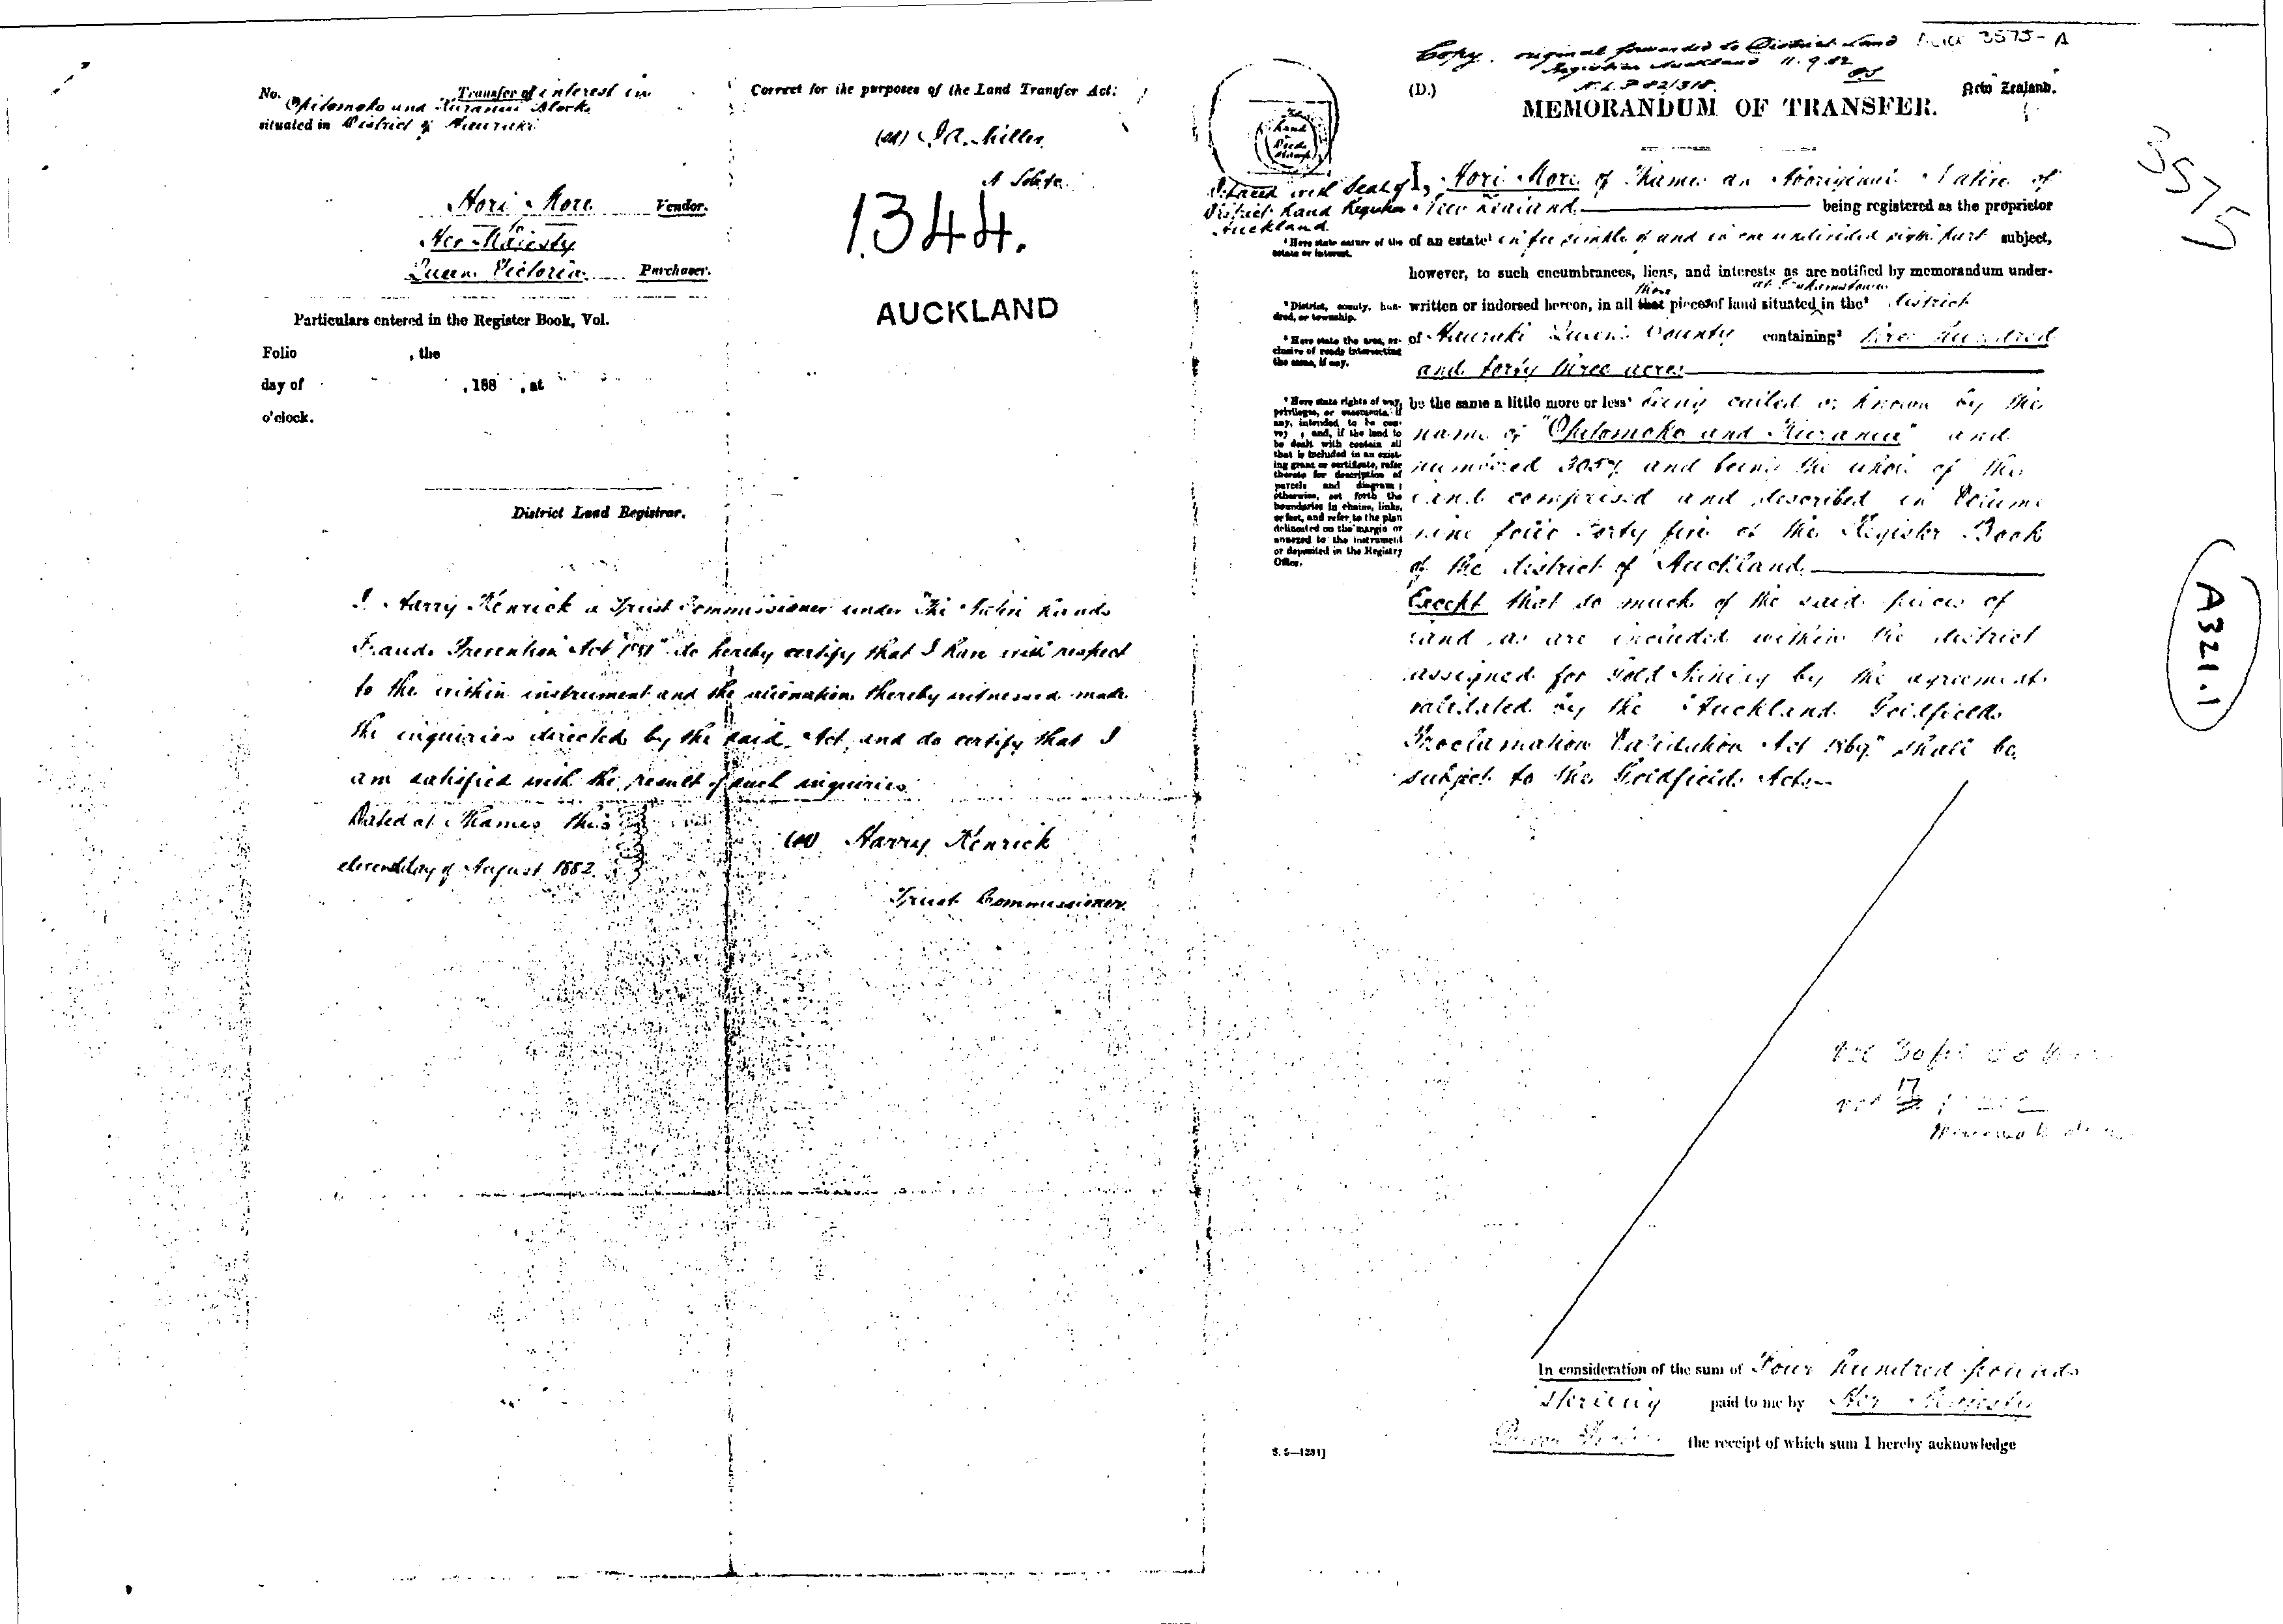 No. Transfer of interest in
Opitomoko and Kuranui Blocks
situated in District of Hauraki
Hori More Vendor.
to
Her Majesty
Queen Victoria Purchaser.
Particulars entered in the Register Book, Vol.
Folio , the
day of , 188 , at
o'clock.
District Land Registrar.
Correct for the purposes of the Land Transfer Act:
J A. Miller
A Solr
1344.
AUCKLAND
I Harry Kenrick a Trust Commissioner under "The Native Lands
Frauds Prevention Act 1881" do hereby certify that I have with respect
to the within instrument and the alienation thereby witnessed made
the inquiries directed by the said Act, and do certify that I
am satisfied with the result of such inquiries
Dated at Thames this
eleventh day of August 1882.
Harry Kenrick
Trust Commissioner.
Copy. original forwarded to District Land
Registrar Auckland 11.9.82
N.L.P 82/318.
3575-A
(D.)
New Zealand.
MEMORANDUM OF TRANSFER.
3575
A321.1
Land
Deeds
Stamp
Seal of
District Land Registrar
Auckland.
I, Hori More of Thames an Aboriginal Native of
New Zealand being registered as the proprietor
¹ Here state nature of the estate or interest.
of an estate¹ in fee simple of and in one undivided eighth part subject,
however, to such encumbrances, liens, and interests as are notified by memorandum under-
those
² District, county, hundred, or township.
written or indorsed hereon, in all that pieces of land situated in the² district
³ Here state the area, exclusive of roads intersecting the same, if any.
of Hauraki Queen's County containing³ three hundred
and forty three acres
⁴ Here state rights of way, privileges, or easements, if any, intended to be convey ; and, if the land to be dealt with contain all that is included in an existing grant or certificate, refer thereto for description of parcels and diagram ; otherwise, set forth the boundaries in chains, links, or feet, and refer to the plan delineated on the margin or annexed to the instrument or deposited in the Registry Office.
be the same a little more or less⁴ being called or known by the
name of "Opitomoko and Kuranui" and
numbered 3057 and being the whole of the
land comprised and described in Volume
nine folio forty five of the Register Book
of the district of Auckland
Except that so much of the said pieces of
land as are included within the district
assigned for Gold Mining by the agreements
validated by the "Auckland Goldfields
Proclamation Validation Act 1869" shall be
subject to the Goldfields Acts
In consideration of the sum of Four hundred pounds
Sterling paid to me by Her Majesty
Queen Victoria the receipt of which sum I hereby acknowledge
S. 5—1281]